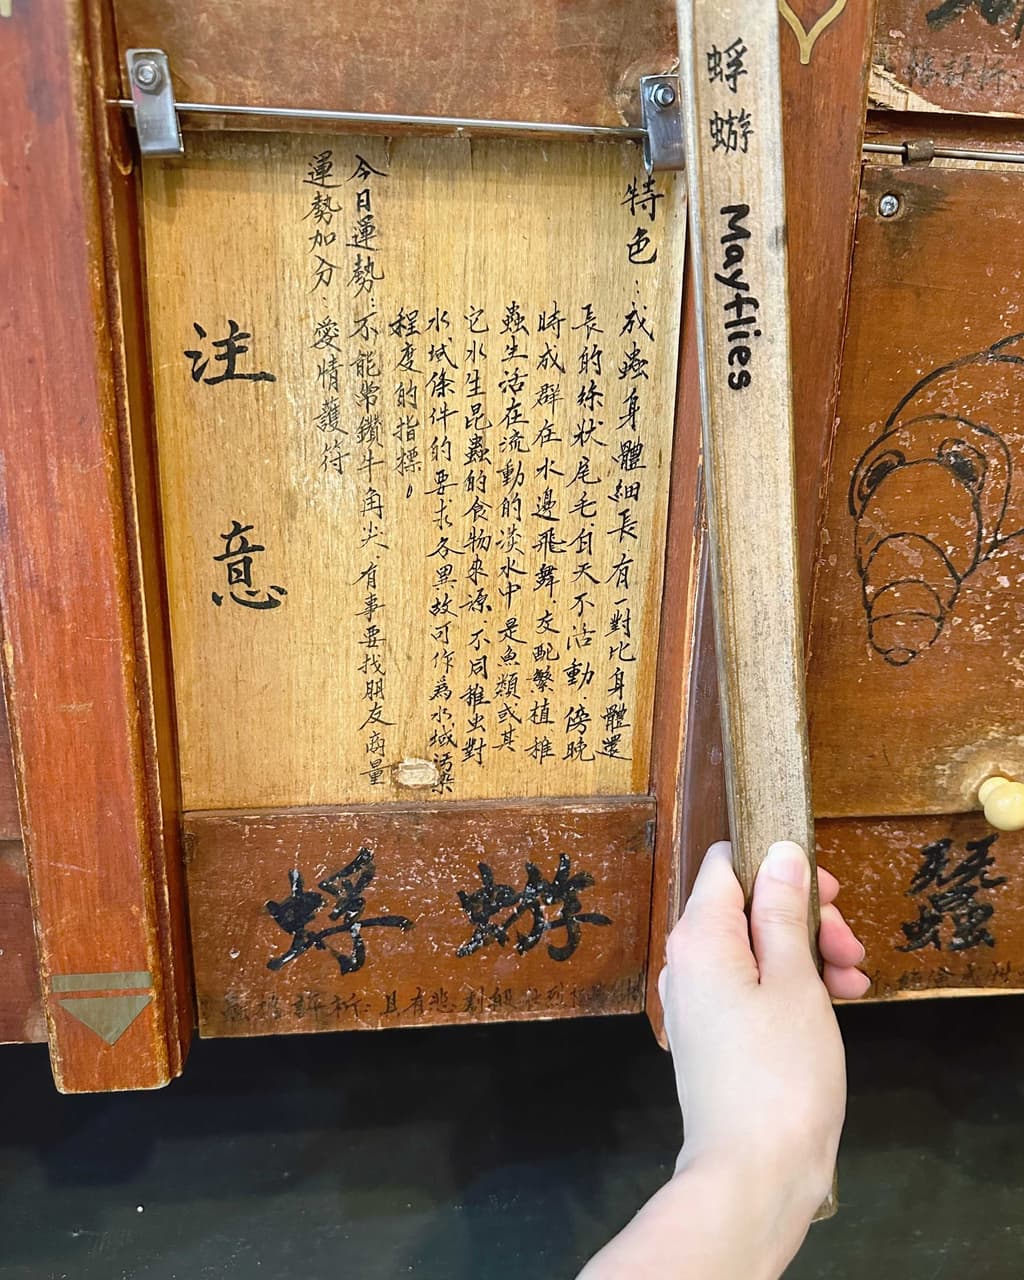 蜉蝣 Mayflies
特色:成蟲身體細長有一對比身體還
長的絲狀尾毛.白天不活動.傍晚
時成群在水邊飛舞.交配繁植稚
蟲生活在流動的淡水中是魚類或其
它水生昆蟲的食物來源.不同稚虫對
水域條件的要求各異故可作為水域污染
程度的指標。
今日運勢:不能常鑽牛角尖.有事要找朋友商量
運勢加分:愛情護符
注意
蜉蝣
評析:具有悲劇般